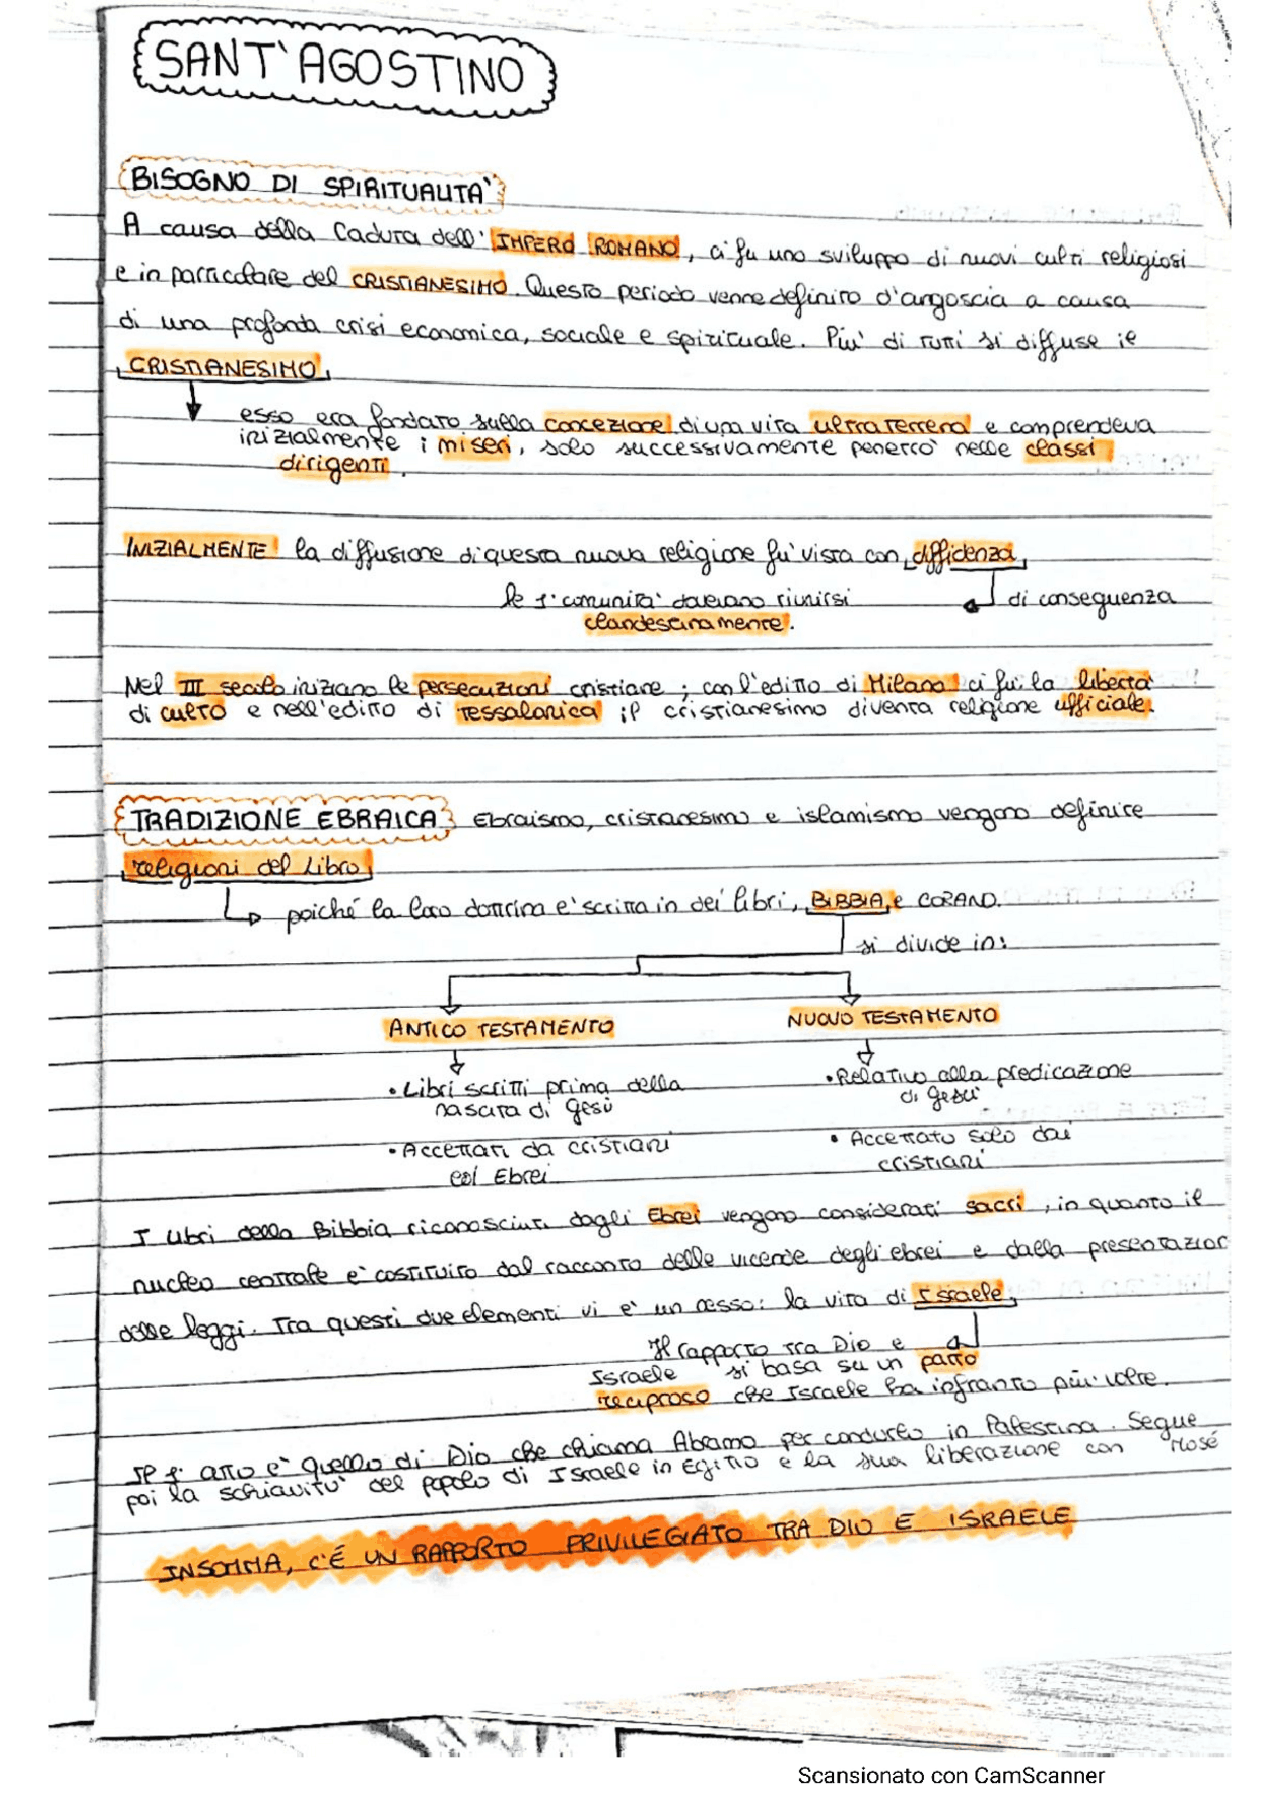 SANT'AGOSTINO
BISOGNO DI SPIRITUALITA'
A causa della Caduta dell'IMPERO ROMANO, ci fu uno sviluppo di nuovi culti religiosi
e in particolare del CRISTIANESIMO. Questo periodo venne definito d'angoscia a causa
di una profonda crisi economica, sociale e spirituale. Piu' di tutti si diffuse il
CRISTIANESIMO,
esso era fondato sulla concezione di una vita ultraterrena e comprendeva
inizialmente i miseri, solo successivamente penetrò nelle classi
dirigenti.
INIZIALMENTE la diffusione di questa nuova religione fu' vista con diffidenza,
le 1° comunità dovevano riunirsi di conseguenza
clandestinamente.
Nel III secolo iniziano le persecuzioni cristiane; con l'editto di Milano ci fu la libertà
di culto e nell'editto di Tessalonica il cristianesimo diventa religione ufficiale.
TRADIZIONE EBRAICA Ebraismo, cristianesimo e islamismo vengono definite
religioni del Libro,
poiché la loro dottrina e' scritta in dei libri, BIBBIA e CORANO.
si divide in:
ANTICO TESTAMENTO NUOVO TESTAMENTO
• Libri scritti prima della • Relativo alla predicazione
nascita di Gesù di Gesù
• Accettati da cristiani • Accettato solo dai
ed Ebrei cristiani
I Libri della Bibbia riconosciuti dagli Ebrei vengono considerati sacri, in quanto il
nucleo centrale e' costituito dal racconto delle vicende degli ebrei e dalla presentazion
delle leggi. Tra questi due elementi vi e' un nesso: la vita di Israele,
Il rapporto tra Dio e
Israele si basa su un patto
reciproco che Israele ha infranto più volte.
Il 1° atto e' quello di Dio che chiama Abramo per condurlo in Palestina. Segue
poi la schiavitu' del popolo di Israele in Egitto e la sua liberazione con Mosé
INSOMMA, C'É UN RAPPORTO PRIVILEGIATO TRA DIO E ISRAELE
Scansionato con CamScanner